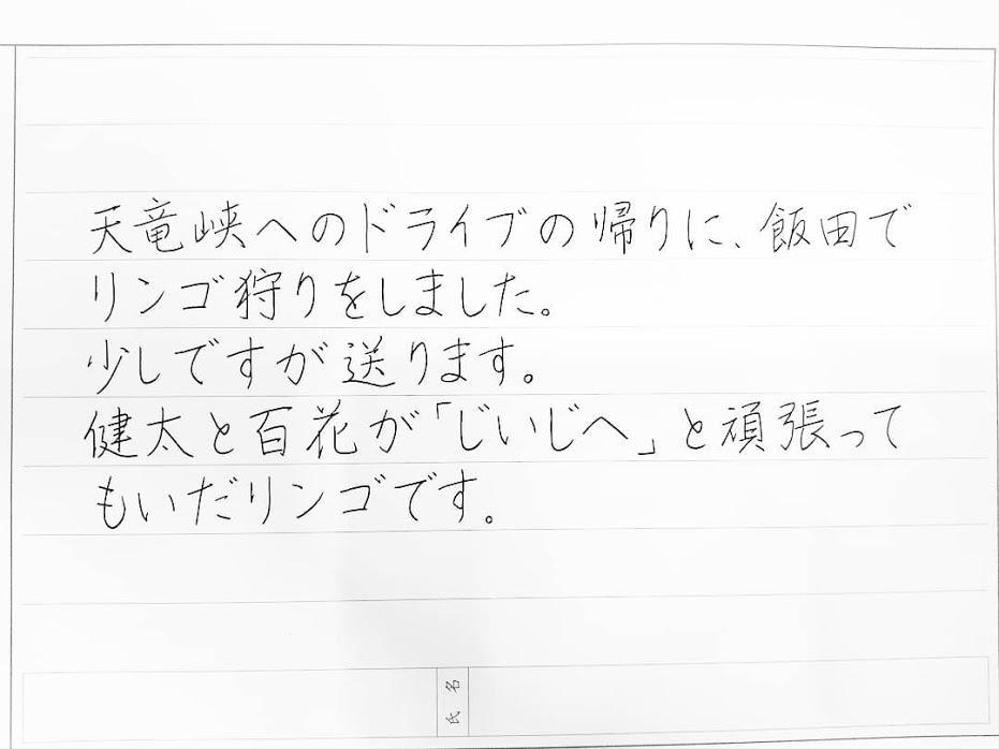 天竜峡へのドライブの帰りに、飯田で
リンゴ狩りをしました。
少しですが送ります。
健太と百花が「じいじへ」と頑張って
もいだリンゴです。
氏名